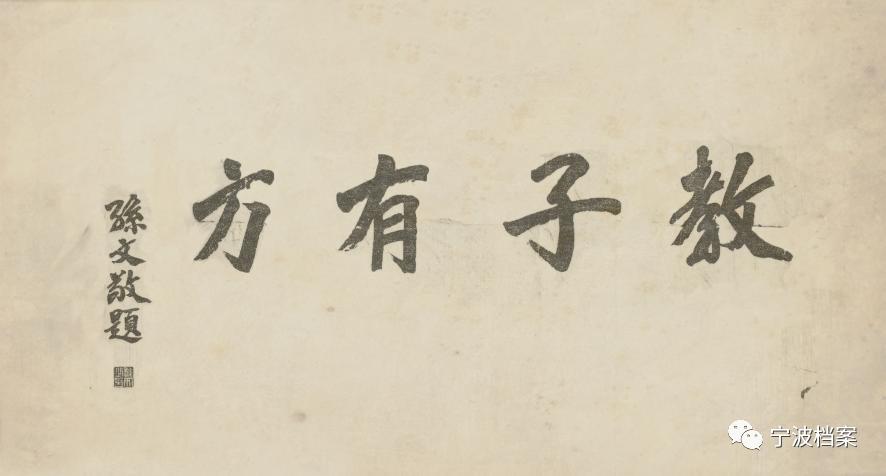 教子有方
孫文敬題
宁波档案